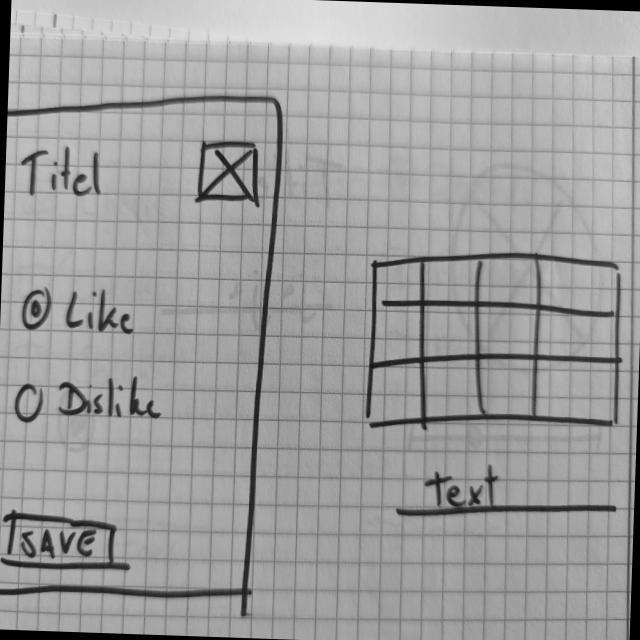 Titel
Like
Dislike
SAVE
text